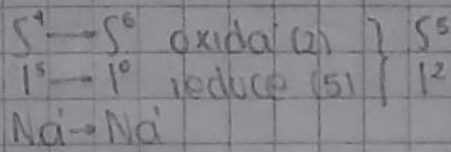 S⁴ → S⁶ oxida (2) } S⁵
I⁵ → I⁰ reduce (5) } I²
Na¹ → Na¹